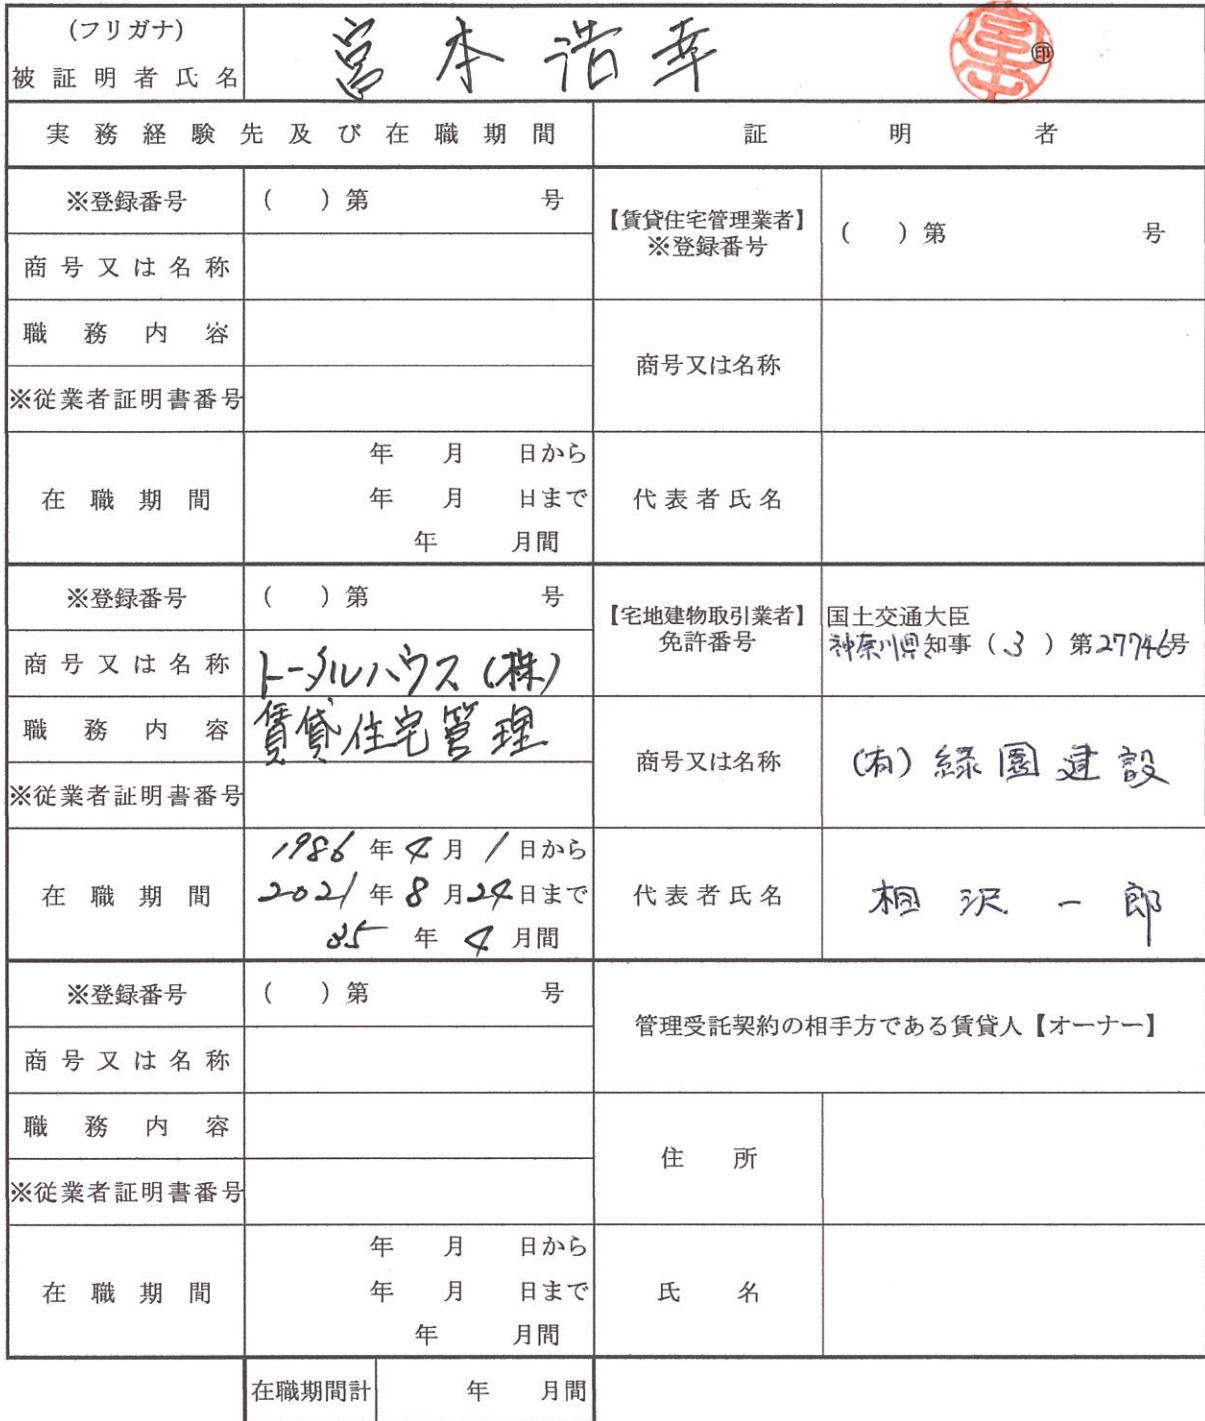 (フリガナ)
被証明者氏名 宮本浩幸 ㊞
実務経験先及び在職期間 証明者
※登録番号 ( )第 号
【賃貸住宅管理業者】
※登録番号 ( )第 号
商号又は名称
職務内容
※従業者証明書番号
商号又は名称
在職期間
年 月 日から
年 月 日まで
年 月間
代表者氏名
※登録番号 ( )第 号
【宅地建物取引業者】
免許番号
国土交通大臣
神奈川県知事(3)第27746号
商号又は名称 トータルハウス(株)
職務内容 賃貸住宅管理
※従業者証明書番号
商号又は名称 (有)緑園建設
在職期間
1986年4月1日から
2021年8月24日まで
35年4月間
代表者氏名 相沢一郎
※登録番号 ( )第 号
管理受託契約の相手方である賃貸人【オーナー】
商号又は名称
職務内容
※従業者証明書番号
住所
在職期間
年 月 日から
年 月 日まで
年 月間
氏名
在職期間計 年 月間